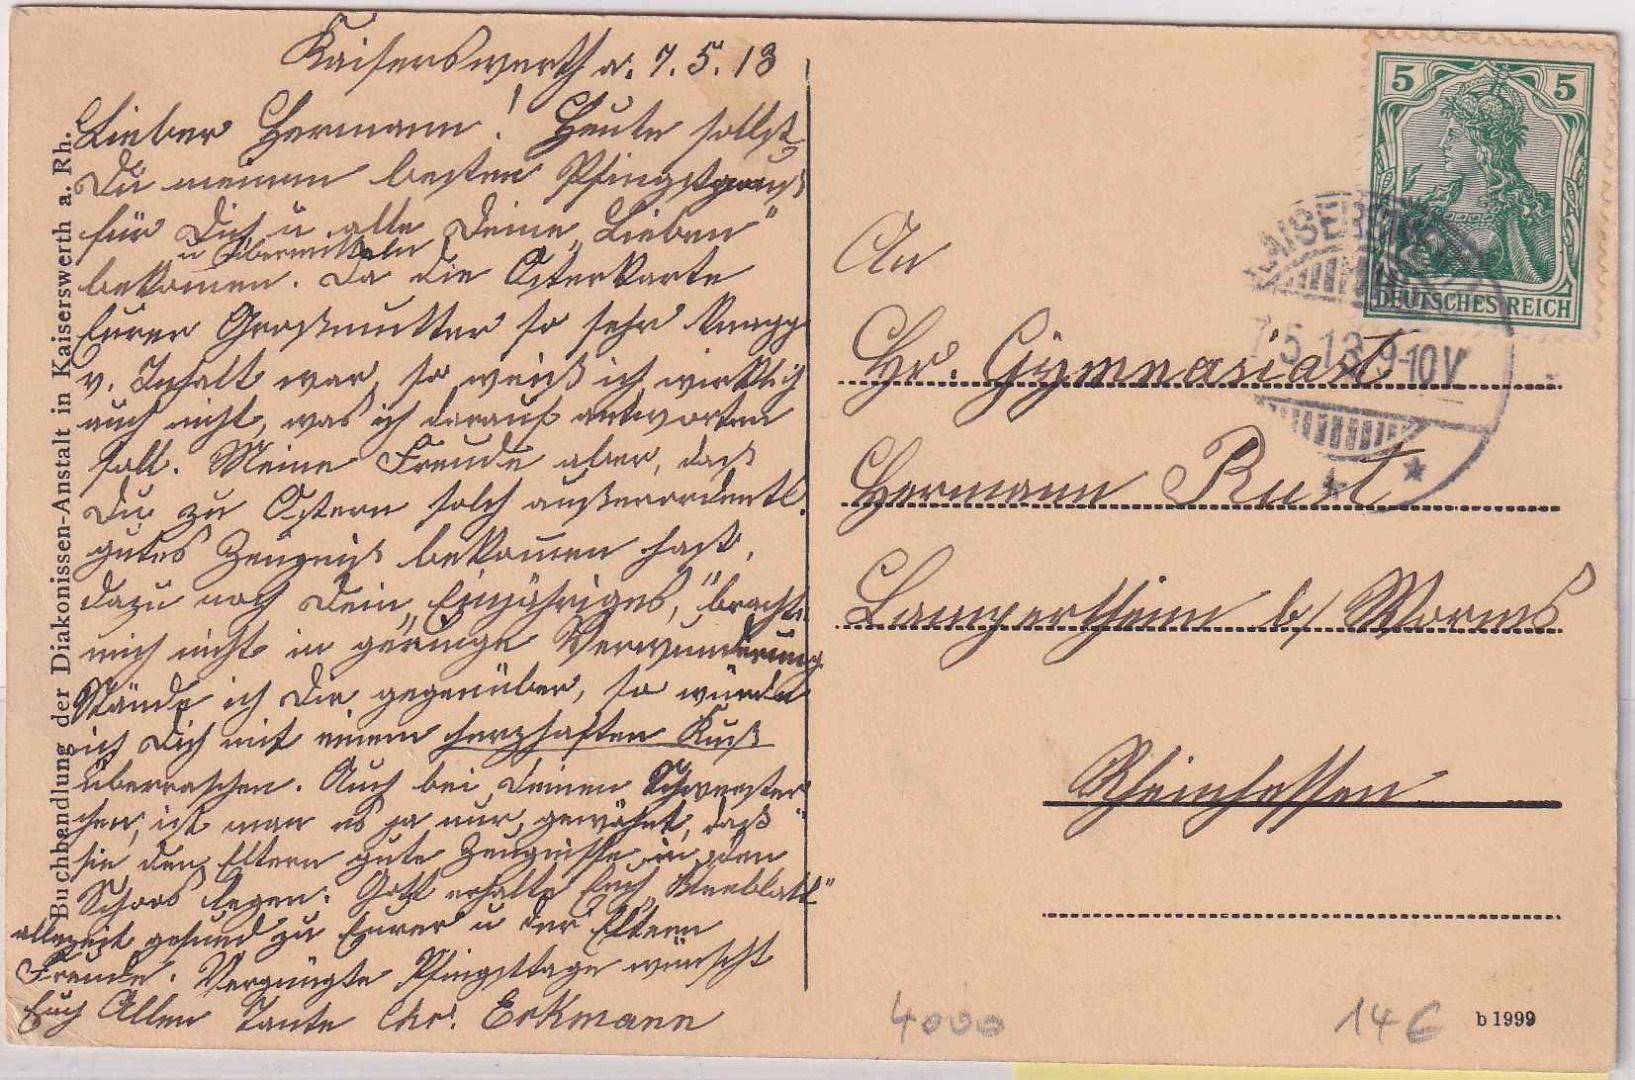 Kaiserswerth a. 7.5.13
Lieber Hermann! Heute sollst
Du meinen besten Pfingstgruß
für Dich u. alle Deine „Lieben"
u. übermitteln
bekommen. Da die Osterkarte
Eurer Großmutter so sehr knapp
v. Inhalt war, so weiß ich wirklich
auch nicht, was ich darauf antworten
soll. Meine Freude aber, daß
Du zu Ostern solch außerordentl.
gutes Zeugnis bekommen hast,
dazu noch Dein „Einjähriges," brachte
mich nicht in geringe Verwunderung
Stände ich Dir gegenüber, so würde
ich Dich mit einem herzhaften Kuß
überraschen. Auch bei Deinen Schwester
chen, ist man es ja nur gewöhnt, daß
sie den Eltern gute Zeugnisse in den
Schoos legen. Gott erhalte Euch „Kleeblatt"
allezeit gesund zu Eurer u der Eltern
Freude. Vergnügte Pfingsttage wünscht
Euch Allen Tante Chr. Eckmann
Buchhandlung der Diakonissen-Anstalt in Kaiserswerth a. Rh.
5 5
DEUTSCHES REICH
KAISERSWERTH
7.5.13 9-10V
An
Hr. Gymnasiast
Hermann Rust
Lampertheim b/ Worms
Rheinhessen
4000
14 €
b 1999